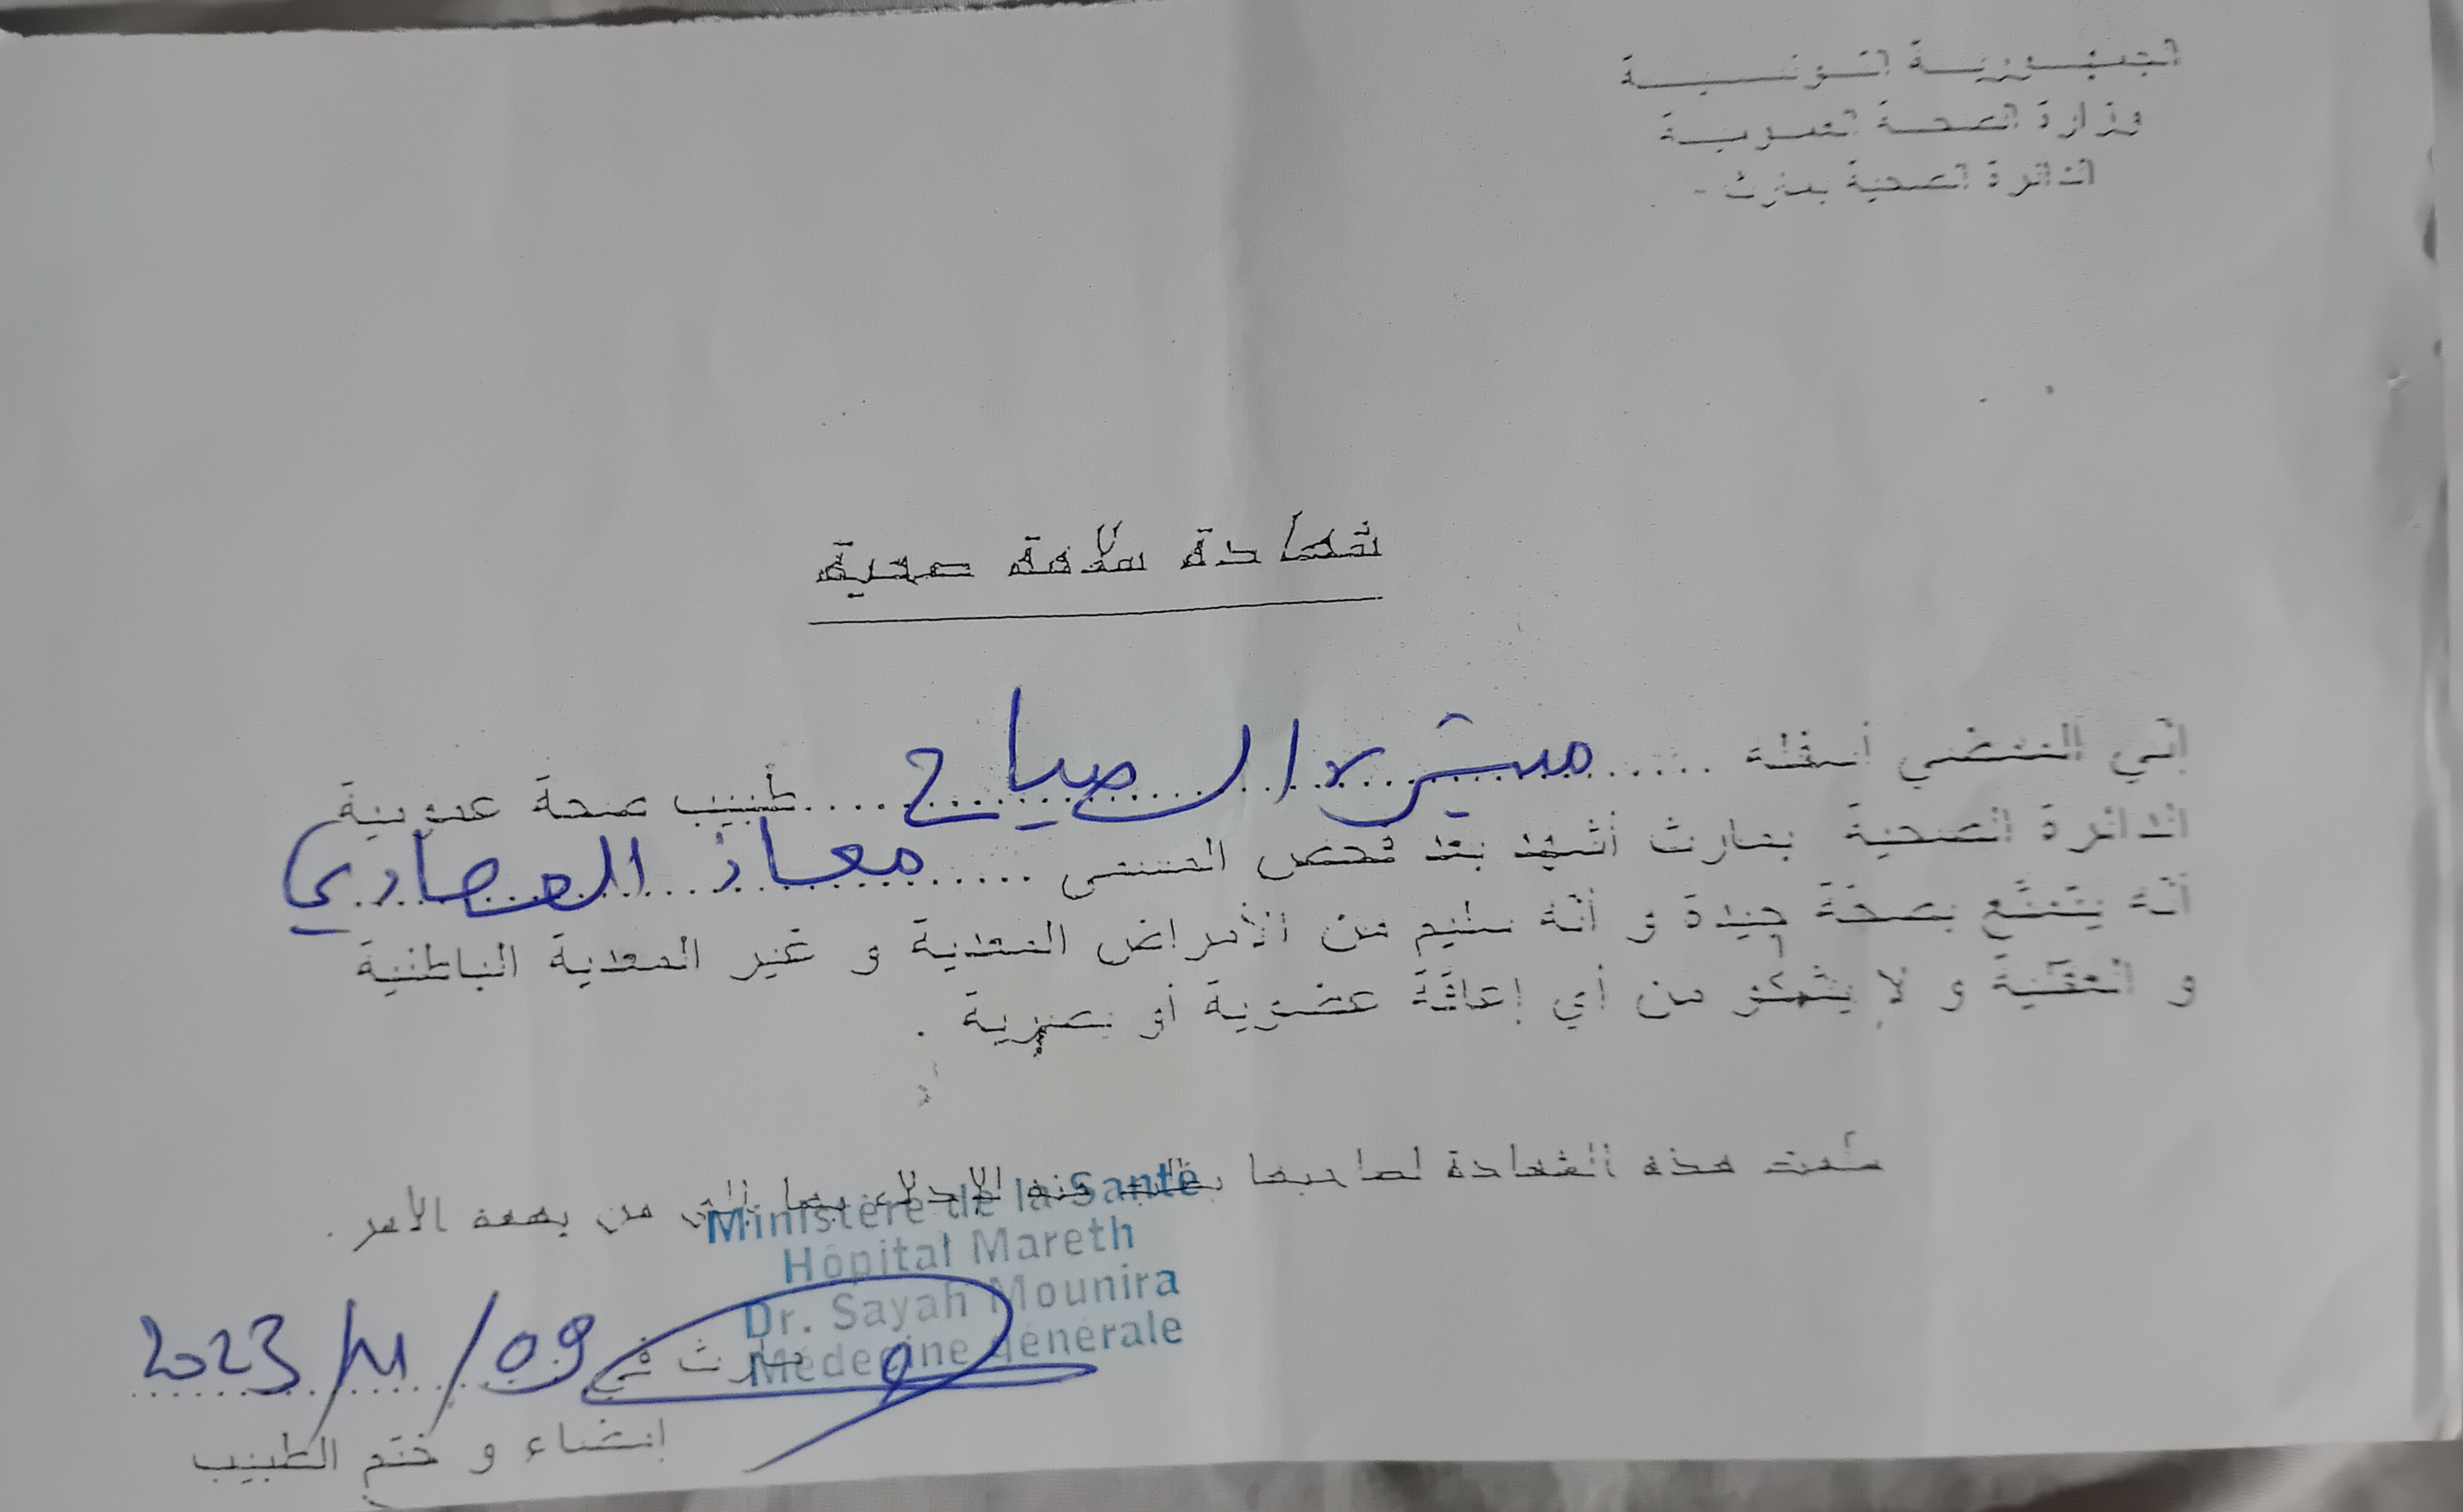 الجمهورية التونسية
وزارة الصحة العمومية
الدائرة الصحية بمارث -
شهادة سلامة صحية
إنّي الممضي أسفله ..... الصياح ..... طبيب صحة عمومية
الدائرة الصحية بمارث أشهد بعد فحص المسمى ..... معاذ
أنّه يتمتّع بصحّة جيّدة و أنّه سليم من الأمراض المعدية و غير المعدية الباطنية
و العقليّة و لا يشكو من أي إعاقة عضوية أو بصرية .
سلّمت هذه الشهادة لصاحبها بطلب منه الإدلاء بها إلى من يهمه الأمر .
Ministère de la Santé
Hôpital Mareth
Dr. Sayah Mounira
Médecine Générale
مارث في 09/11/2023
إمضاء و ختم الطبيب